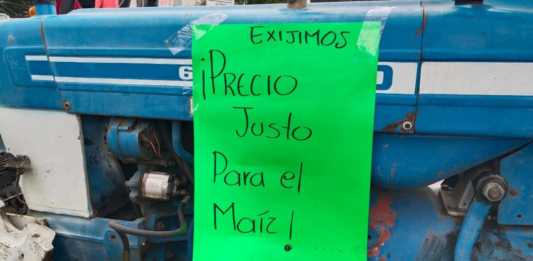 EXIJIMOS
¡PRECIO
Justo
Para el
Maíz!
6
0